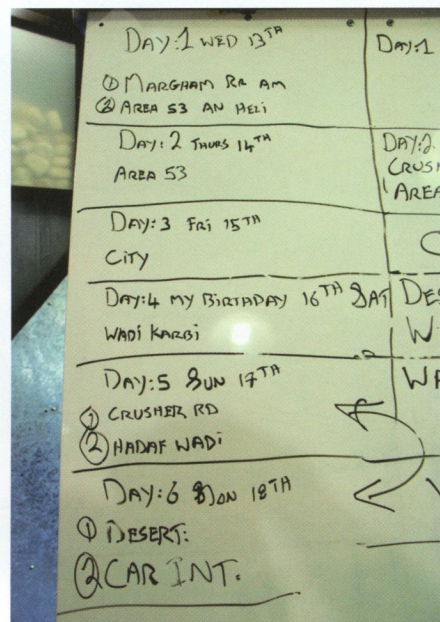 DAY:1 WED 13TH
① MARGHAM RD AM
② AREA 53 AN HELI
DAY:2 THURS 14TH
AREA 53
DAY:3 FRI 15TH
CITY
DAY:4 MY BIRTHDAY 16TH SAT
WADI KARBI
DAY:5 SUN 17TH
① CRUSHER RD
② HADAF WADI
DAY:6 MON 18TH
① DESERT:
② CAR INT.
DAY:1
DAY:2
CRUSH
AREA
C
DES
W
WA